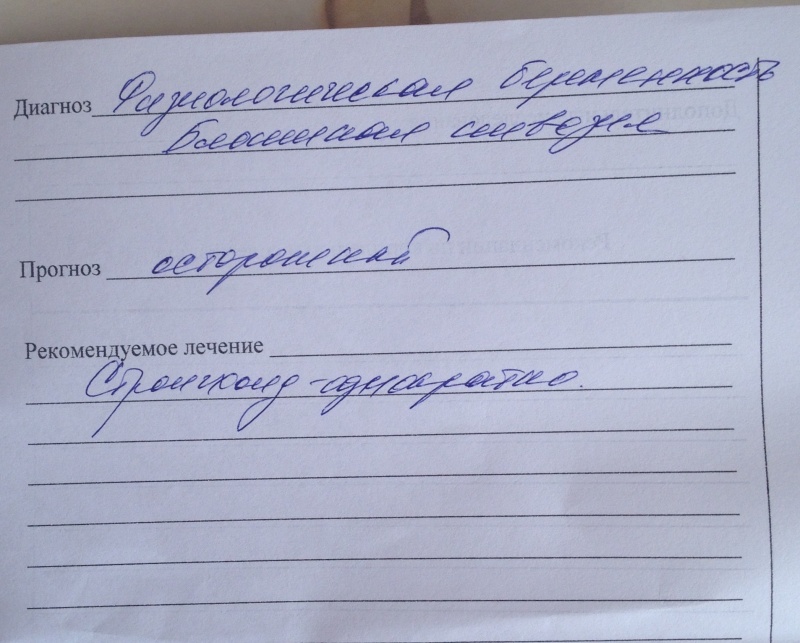 Диагноз Физиологическая беременность
Блошиная инвазия
Прогноз осторожный
Рекомендуемое лечение
Стронгхолд - однократно.